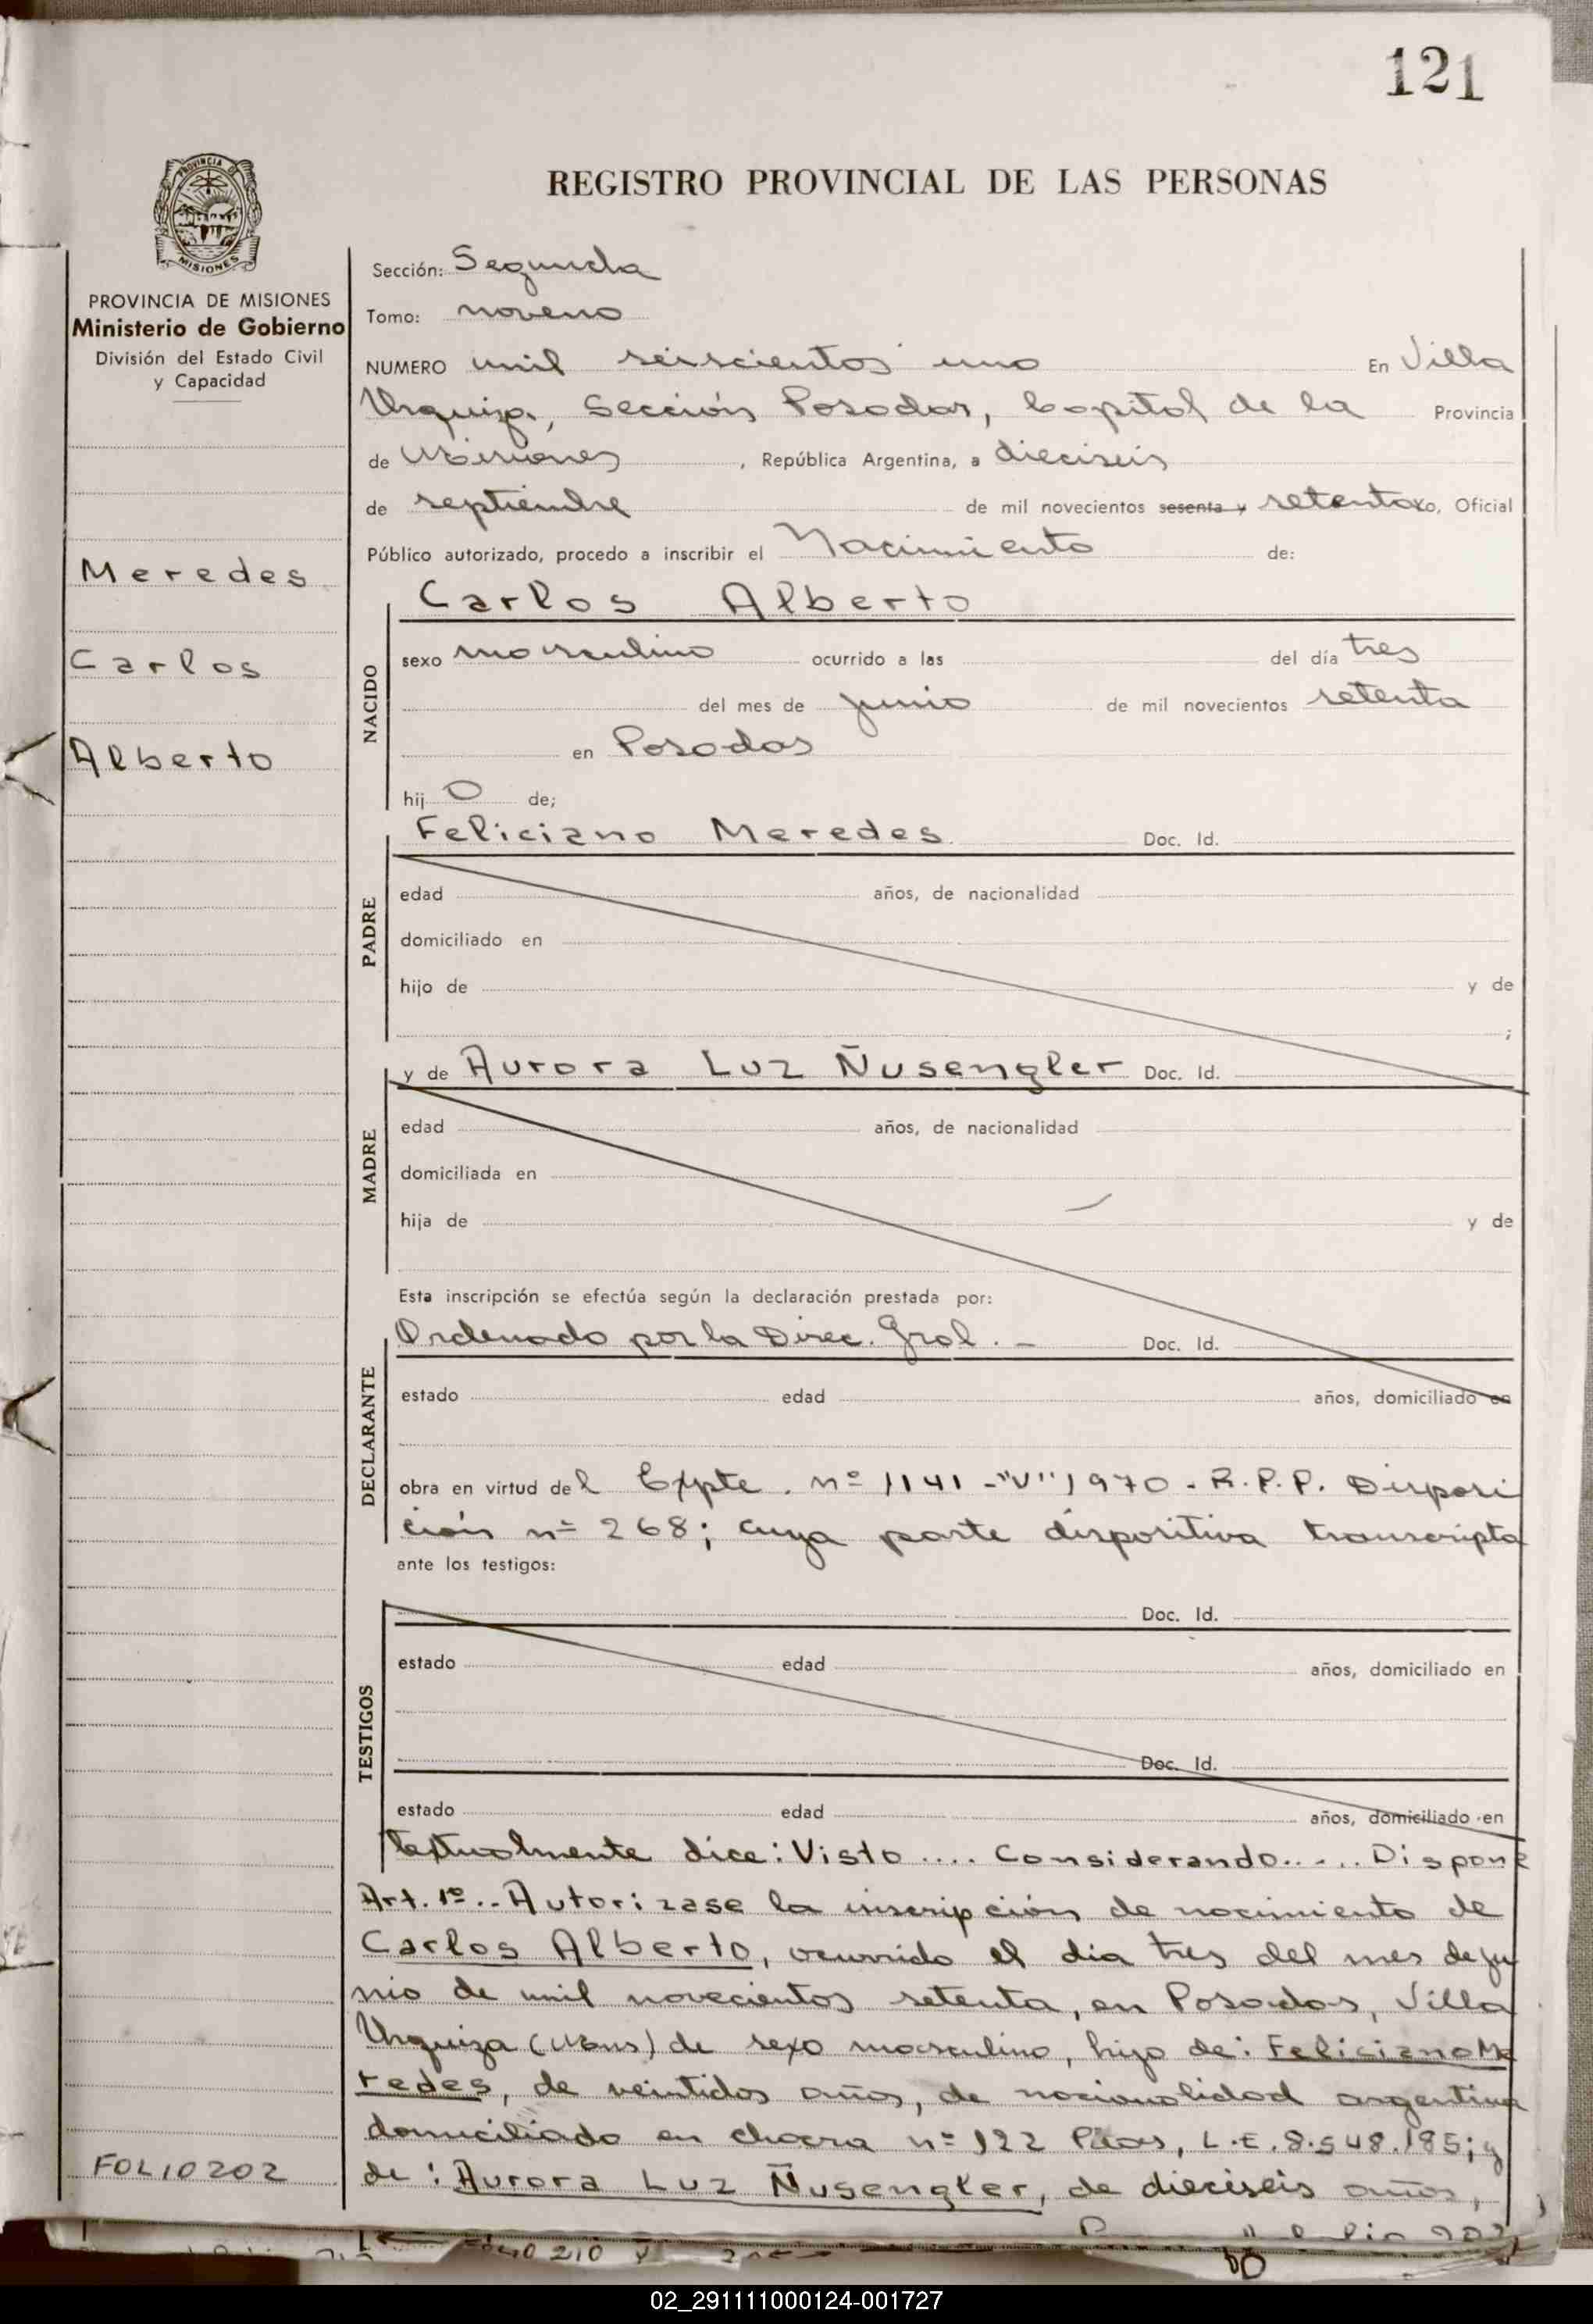 121
PROVINCIA
MISIONES
REGISTRO PROVINCIAL DE LAS PERSONAS
PROVINCIA DE MISIONES
Ministerio de Gobierno
División del Estado Civil
y Capacidad
Meredes
Carlos
Alberto
FOLIO 202
Sección: Segunda
Tomo: noveno
NUMERO mil seiscientos uno En Villa
Urquiza, Sección Posadas, Capital de la Provincia
de Misiones, República Argentina, a dieciseis
de septiembre de mil novecientos sesenta y setenta yo, Oficial
Público autorizado, procedo a inscribir el Nacimiento de:
Carlos Alberto
NACIDO
sexo masculino ocurrido a las del día tres
del mes de junio de mil novecientos setenta
en Posadas
hij o de;
PADRE
Feliciano Meredes Doc. Id.
edad años, de nacionalidad
domiciliado en
hijo de y de
;
MADRE
y de Aurora Luz Ñusengler Doc. Id.
edad años, de nacionalidad
domiciliada en
hija de y de
Esta inscripción se efectúa según la declaración prestada por:
DECLARANTE
Ordenado por la Direc. Gral. - Doc. Id.
estado edad años, domiciliado en
obra en virtud del Expte. nº 1141-"V"1970-R.P.P. Disposi
ción nº 268; cuya parte dispositiva transcripta
ante los testigos:
TESTIGOS
Doc. Id.
estado edad años, domiciliado en
Doc. Id.
estado edad años, domiciliado en
textualmente dice: Visto .... Considerando..... Dispone
Art. 1º.- Autorizase la inscripción de nacimiento de
Carlos Alberto, ocurrido el dia tres del mes de ju
nio de mil novecientos setenta, en Posadas, Villa
Urquiza (Mnes) de sexo masculino, hijo de: Feliciano Me
redes, de veintidos años, de nacionalidad argentina
domiciliado en chacra nº 122 Pdas, L.E. 8.548.185; y
de: Aurora Luz Ñusengler, de dieciseis años,
02_291111000124-001727